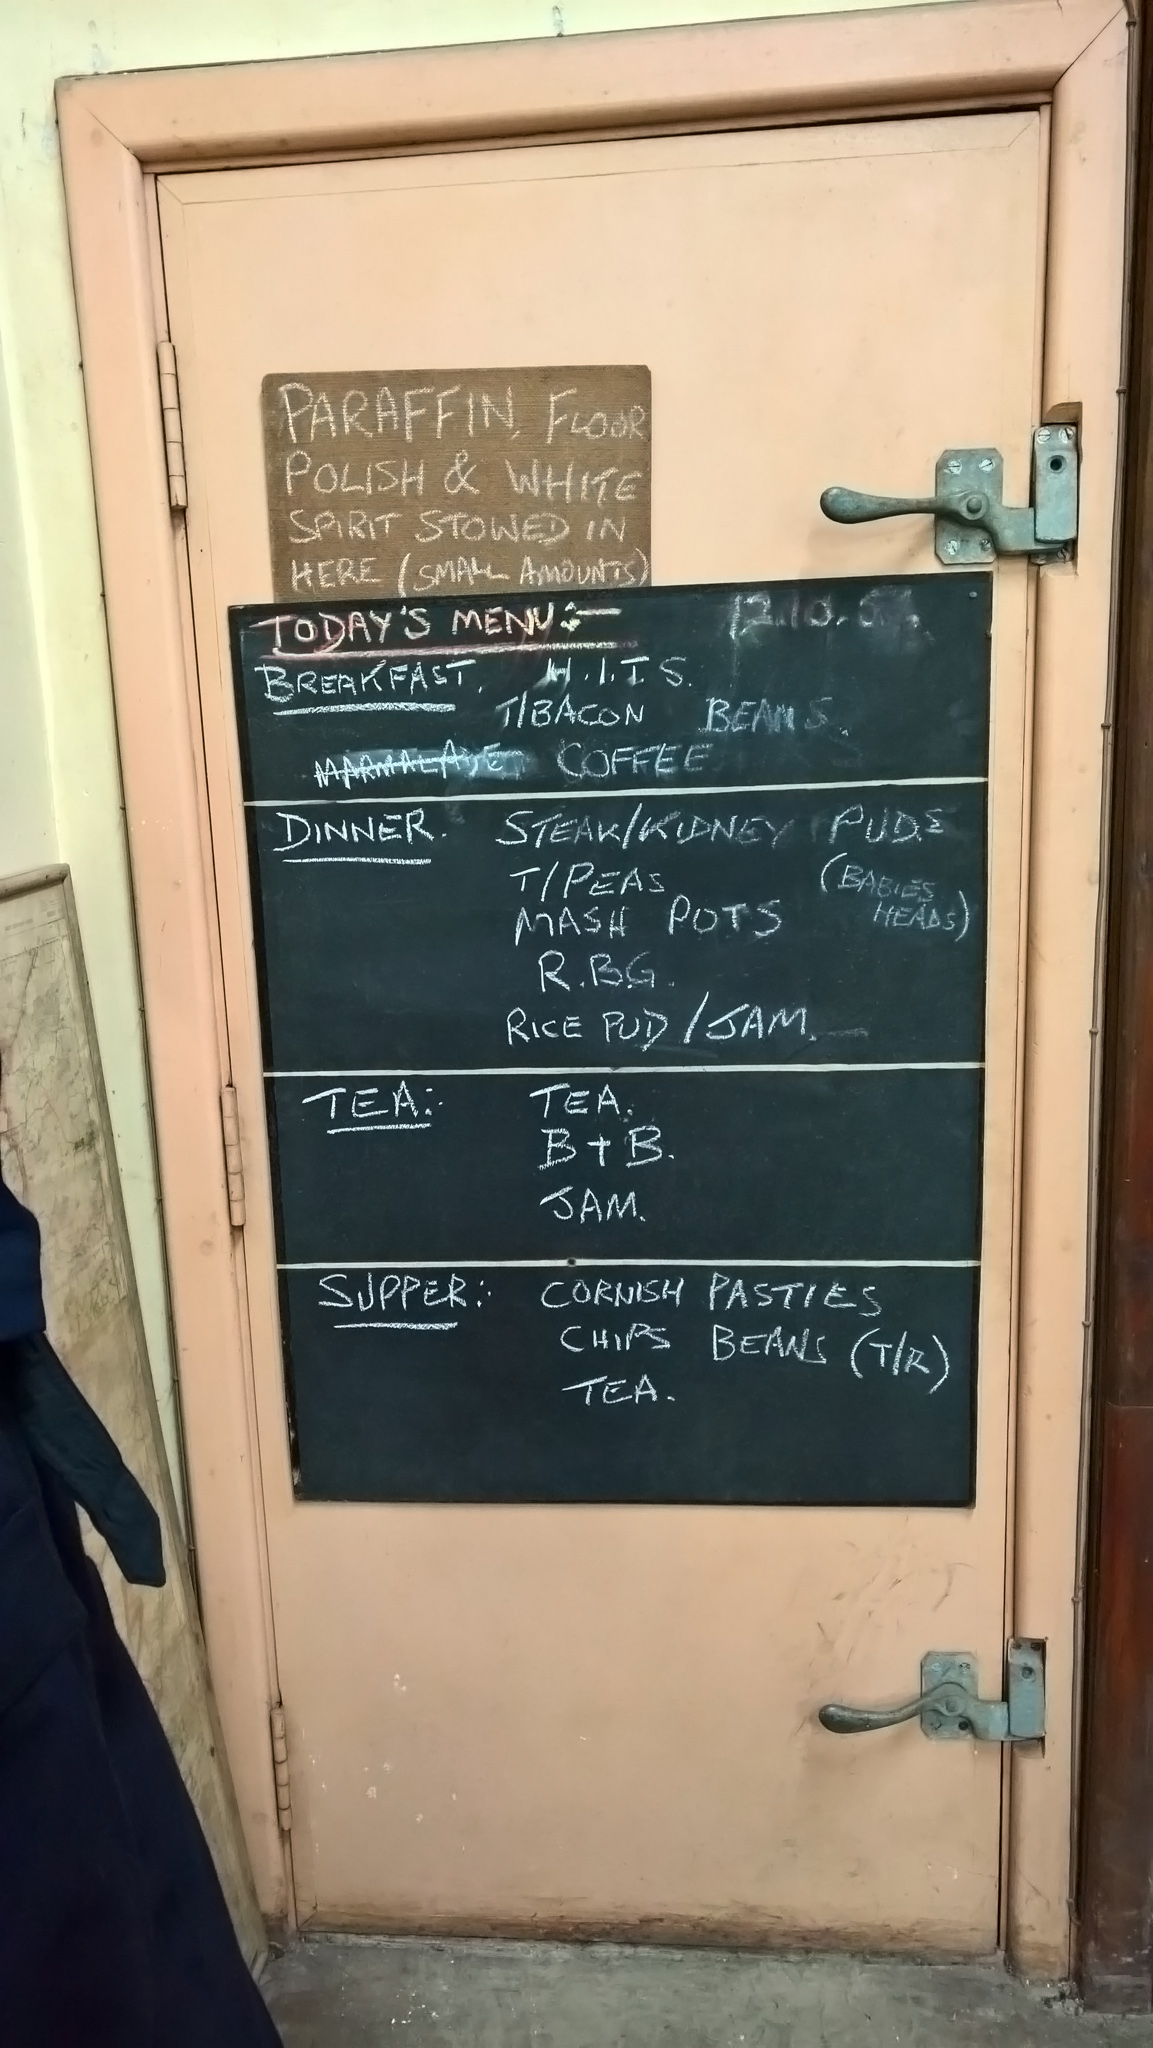 PARAFFIN, FLOOR
POLISH & WHITE
SPIRIT STOWED IN
HERE (SMALL AMOUNTS)
TODAY'S MENU:-
BREAKFAST. H.I.T.S.
T/BACON BEANS.
MARMALADE COFFEE
DINNER. STEAK/KIDNEY PUDS
T/PEAS (BABIES
MASH POTS HEADS)
R.B.G.
RICE PUD/JAM.
TEA:- TEA.
B+B.
JAM.
SUPPER:- CORNISH PASTIES
CHIPS BEANS (T/R)
TEA.